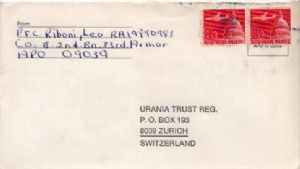 From
Pfc Riboni, Leo RA19890985
Co. B 2nd Bn. 33rd Armor
APO 09039
8c AIR MAIL
8c AIR MAIL
URANIA TRUST REG.
P. O. BOX 193
8039 ZURICH
SWITZERLAND